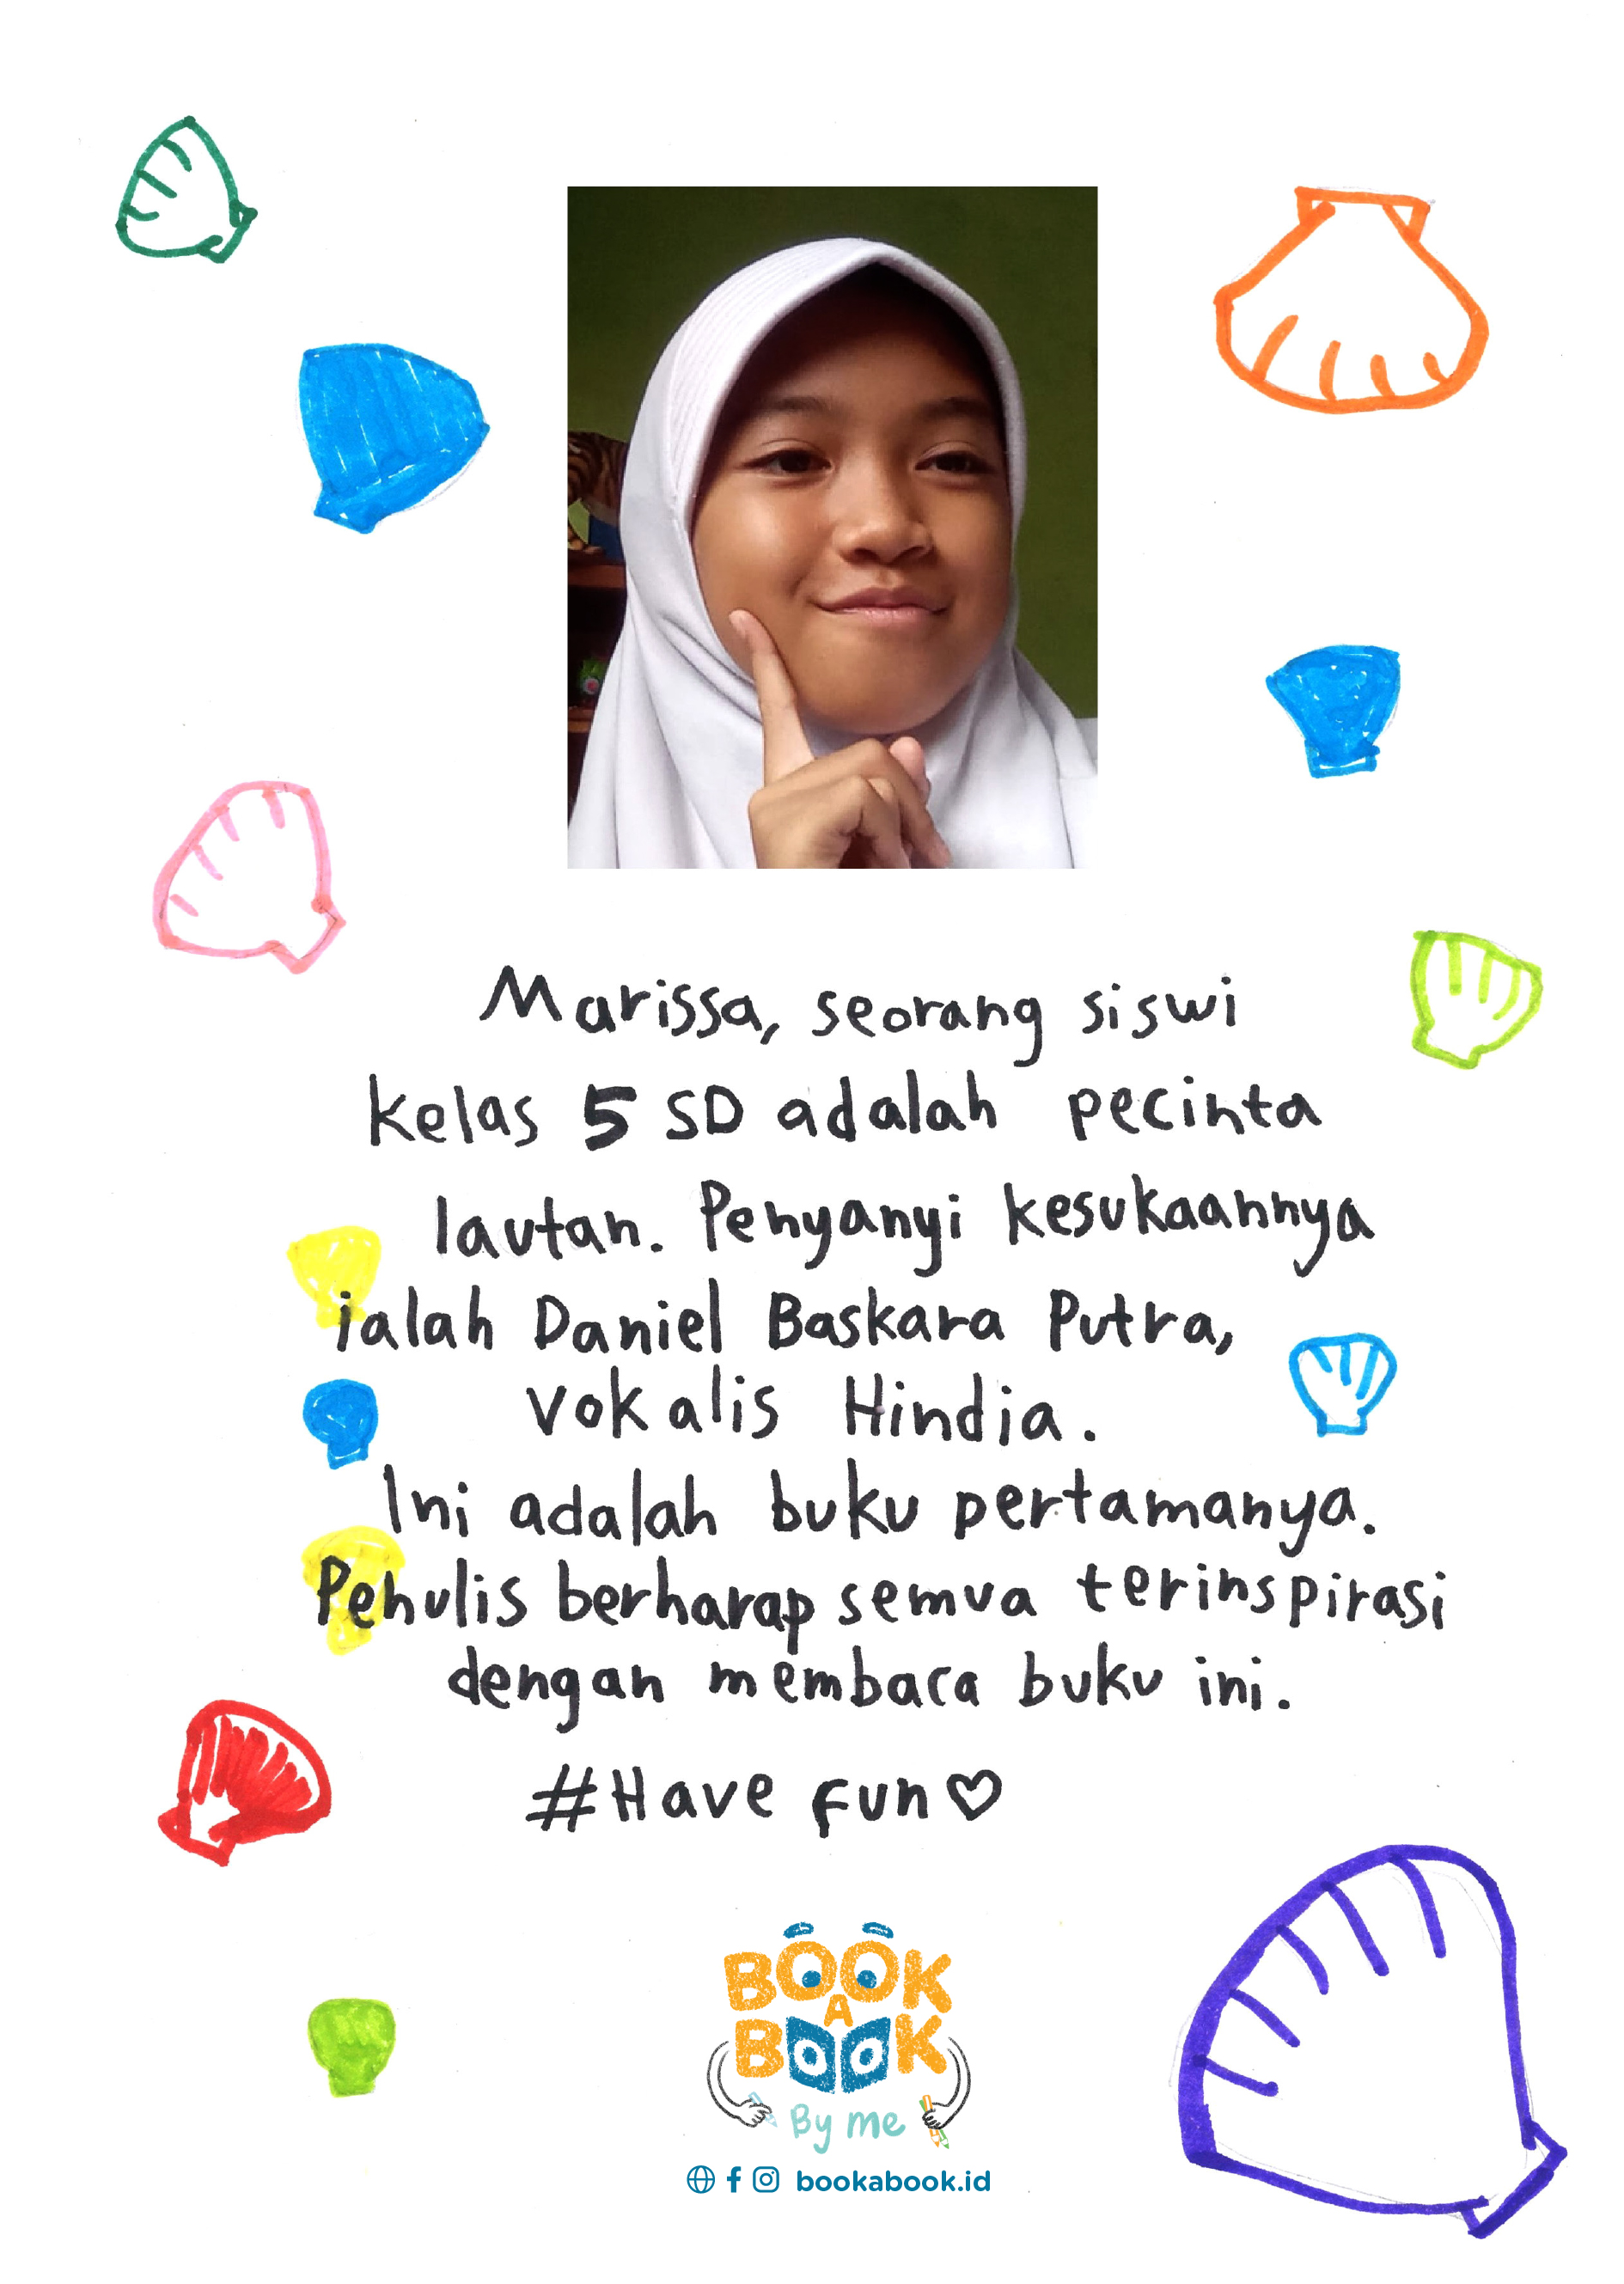 Marissa, seorang siswi
kelas 5 SD adalah pecinta
lautan. Penyanyi kesukaannya
ialah Daniel Baskara Putra,
vokalis Hindia.
Ini adalah buku pertamanya.
Penulis berharap semua terinspirasi
dengan membaca buku ini.
#Have fun♡
BOOK
A
BOOK
By me
bookabook.id